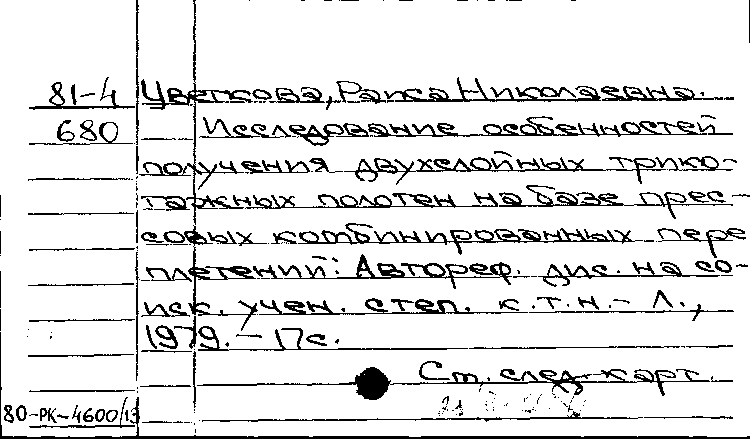 81-4 Цветкова, Раиса Николаевна.
680 Исследование особенностей
получения двухслойных трико-
тажных полотен на базе прес-
совых комбинированных пере
плетений: Автореф. дис. на со-
иск. учен. степ. к.т.н. - Л.,
1979. - 17с.
См. след. карт.
80-РК-4600/13